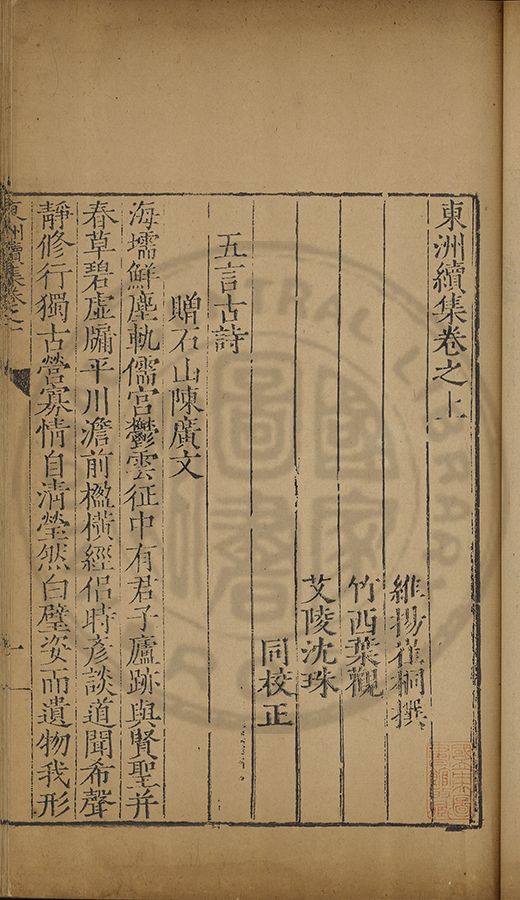 東洲續集卷之上
維揚崔桐撰
竹西葉觀
艾陵沈珠
同校正
五言古詩
贈石山陳廣文
海壖鮮塵軌儒宮鬱雲征中有君子廬跡與賢聖并
春草碧虛牖平川澹前楹橫經侶時彥談道聞希聲
靜修行獨古營寡情自清瑩然白璧姿而遺物我形
東洲續集卷之上
一